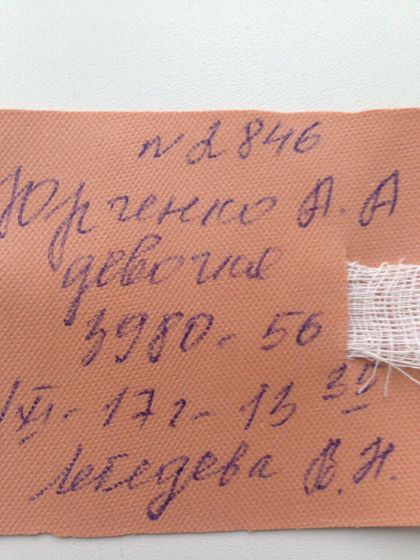 N 2846
Юрченко А. А
девочка
3980 - 56
1/XI - 17 г - 13 30
Лебедева В. Н.